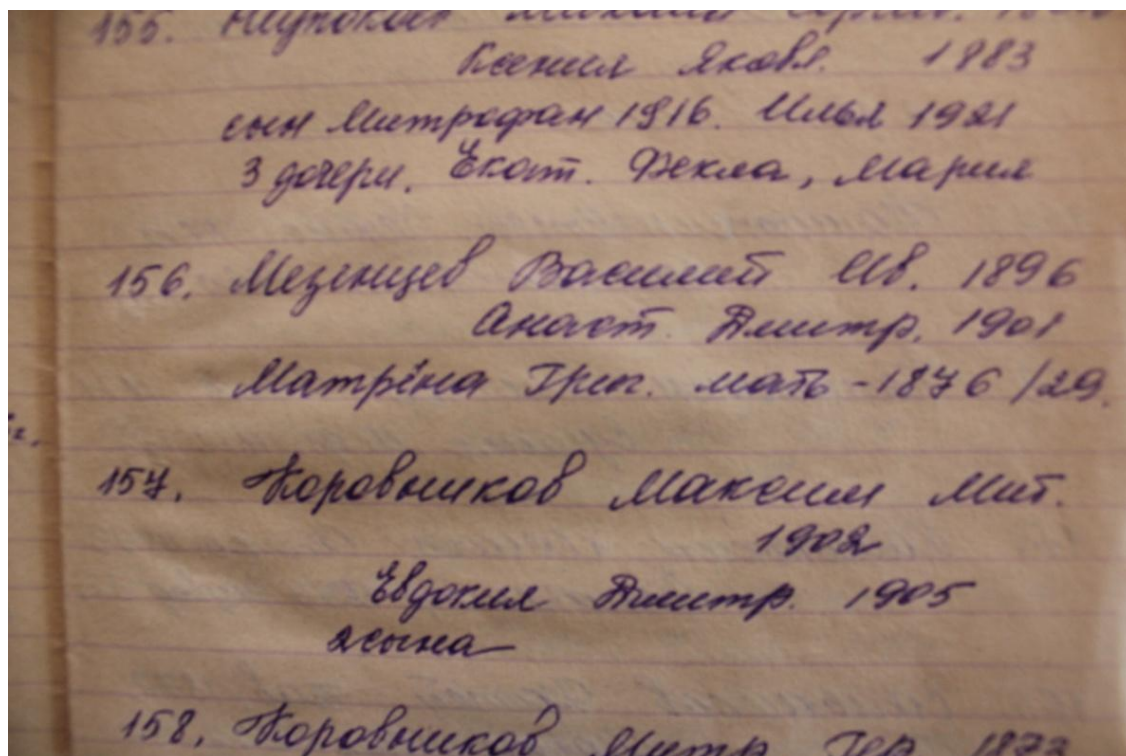 155.
Ксения Яковл. 1883
сын Митрофан 1916. Илья 1921
3 дочери. Екат. Фекла, Мария
156. Мезенцев Василий Ив. 1896
Анаст. Дмитр. 1901
Матрёна Григ. мать - 1876 /29.
157. Коровников Максим Мит.
1902
Евдокия Дмитр. 1905
2 сына
158. Коровников Митр. Гер.